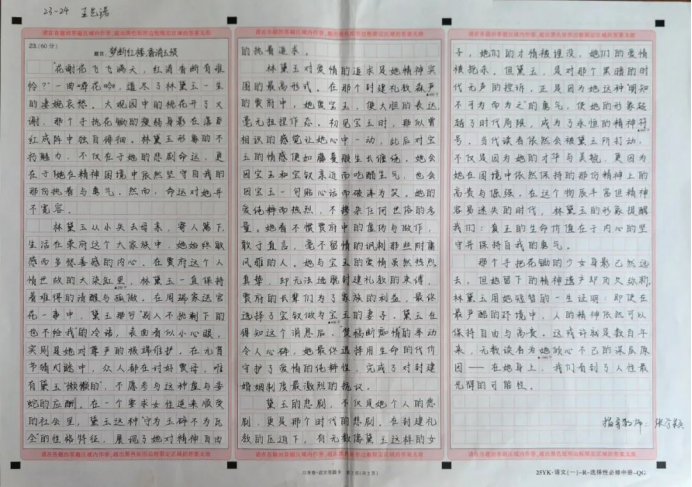 23-24
23.(60分)
题目:梦断红楼,香消玉殒
“花谢花飞飞满天,红消香断有谁
怜?”一曲葬花吟,道尽了林黛玉一生
的凄婉哀愁。大观园中的桃花开了又
谢,那个手把花锄的瘦弱身影在落
红成阵中独自徘徊。林黛玉形象的不
朽魅力,不仅在于她的悲剧命运,更
在于她在精神困境中依然坚守自我的
那份执着与勇气,然而,命运对她并
不宽容。
林黛玉从小失去母亲,寄人篱下,
生活在贾府这个大家族中,她始终敏
感而多愁善感的内心,在贾府这个人
情世故的大染缸里,林黛玉一直保持
着难得的清醒与孤傲。在周瑞家送宫
花一事中,黛玉那句“别人不挑剩下的
也不给我”的冷语,表面看似小心眼,
实则是她对尊严的极端维护,在元宵
节猜灯谜中,众人都在讨好贾母,唯
有黛玉“懒懒的”,不愿参与这种虚与委
蛇的应酬。在一个要求女性逆来顺受
的社会里,黛玉这种“宁为玉碎不为瓦
全”的性格特征,展现了她对精神自由
的执着追求。
林黛玉对爱情的追求是她精神突
围的最高形式。在那个封建礼教森严
的贾府中,她爱宝玉,便大胆的表达,
毫无扭捏作态。初见宝玉时,那似曾
相识的感觉让她心中一动,此后对宝
玉的情感便如藤蔓般生长缠绕,她会
因宝玉和宝钗亲近而吃醋生气,也会
因宝玉一句贴心话而破涕为笑。她的
爱纯粹而热烈,不掺杂任何世俗的考
量。她看不惯贾府中的虚伪与做作,
敢于直言,毫不留情的讽刺那些附庸
风雅的人,她与宝玉的爱情虽然热烈
真挚,却无法逃脱封建礼教的束缚,
贾府的长辈们为了家族的利益,最终
选择了宝钗做为宝玉的妻子,黛玉在
得知这个消息后,焚稿断痴情的举动
令人心碎,她最终选择用生命的代价
守护了爱情的纯粹性,完成了对封建
婚姻制度最激烈的抗议。
黛玉的悲剧,不仅是她个人的悲
剧,更是那个时代的悲剧。在封建礼
教的压迫下,有无数像黛玉这样的女
子,她们的才情被埋没,她们的爱情
被扼杀。但黛玉,是对那个黑暗的时
代无声的控诉,正是因为她这种明知
不可为而为之的勇气,使她的形象超
越了时代局限,成为了永恒的精神符
号,当代读者依然会被黛玉所打动,
不仅是因为她的才华与美貌,更因为
她在困境中依然保持的那份精神上的
高贵与倔强,在这个物质丰富但精神
容易迷失的时代,林黛玉的形象提醒
我们:真正的生命价值在于内心的坚
守并保持自我的勇气。
那个手把花锄的少女身影已然远
去,但她留下的精神遗产却为人称新
林黛玉用她短暂的一生证明,即使在
最严酷的环境中,人的精神依然可以
保持自由与高贵。这或许就是数百年
来,无数读者为她倾心不已的深层原
因——在她身上,我们看到了人性最
光辉的可能性。
指导教师:
25YK·语文(一)-R-选择性必修中册-QG